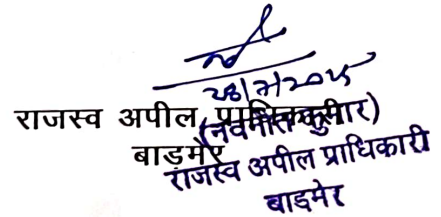 28/7/2025
राजस्व अपील प्राधिकारी
(नवनीत कुमार)
बाड़मेर
राजस्व अपील प्राधिकारी
बाड़मेर